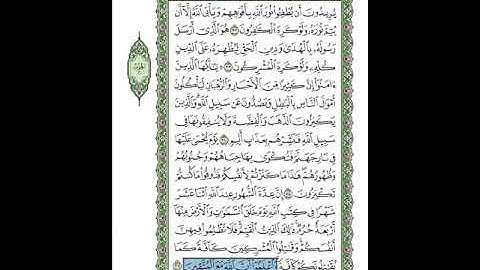 يُرِيدُونَ أَن يُطْفِـُٔوا۟ نُورَ ٱللَّهِ بِأَفْوَٰهِهِمْ وَيَأْبَى ٱللَّهُ إِلَّآ أَن
يُتِمَّ نُورَهُۥ وَلَوْ كَرِهَ ٱلْكَٰفِرُونَ ٣٢ هُوَ ٱلَّذِىٓ أَرْسَلَ
رَسُولَهُۥ بِٱلْهُدَىٰ وَدِينِ ٱلْحَقِّ لِيُظْهِرَهُۥ عَلَى ٱلدِّينِ
كُلِّهِۦ وَلَوْ كَرِهَ ٱلْمُشْرِكُونَ ٣٣ يَٰٓأَيُّهَا ٱلَّذِينَ
ءَامَنُوٓا۟ إِنَّ كَثِيرًا مِّنَ ٱلْأَحْبَارِ وَٱلرُّهْبَانِ لَيَأْكُلُونَ
أَمْوَٰلَ ٱلنَّاسِ بِٱلْبَٰطِلِ وَيَصُدُّونَ عَن سَبِيلِ ٱللَّهِ وَٱلَّذِينَ
يَكْنِزُونَ ٱلذَّهَبَ وَٱلْفِضَّةَ وَلَا يُنفِقُونَهَا فِى
سَبِيلِ ٱللَّهِ فَبَشِّرْهُم بِعَذَابٍ أَلِيمٍ ٣٤ يَوْمَ يُحْمَىٰ عَلَيْهَا
فِى نَارِ جَهَنَّمَ فَتُكْوَىٰ بِهَا جِبَاهُهُمْ وَجُنُوبُهُمْ
وَظُهُورُهُمْ هَٰذَا مَا كَنَزْتُمْ لِأَنفُسِكُمْ فَذُوقُوا۟ مَا كُنتُمْ
تَكْنِزُونَ ٣٥ إِنَّ عِدَّةَ ٱلشُّهُورِ عِندَ ٱللَّهِ ٱثْنَا عَشَرَ
شَهْرًا فِى كِتَٰبِ ٱللَّهِ يَوْمَ خَلَقَ ٱلسَّمَٰوَٰتِ وَٱلْأَرْضَ مِنْهَآ
أَرْبَعَةٌ حُرُمٌ ذَٰلِكَ ٱلدِّينُ ٱلْقَيِّمُ فَلَا تَظْلِمُوا۟ فِيهِنَّ
أَنفُسَكُمْ وَقَٰتِلُوا۟ ٱلْمُشْرِكِينَ كَآفَّةً كَمَا
يُقَٰتِلُونَكُمْ كَآفَّةً وَٱعْلَمُوٓا۟ أَنَّ ٱللَّهَ مَعَ ٱلْمُتَّقِينَ ٣٦